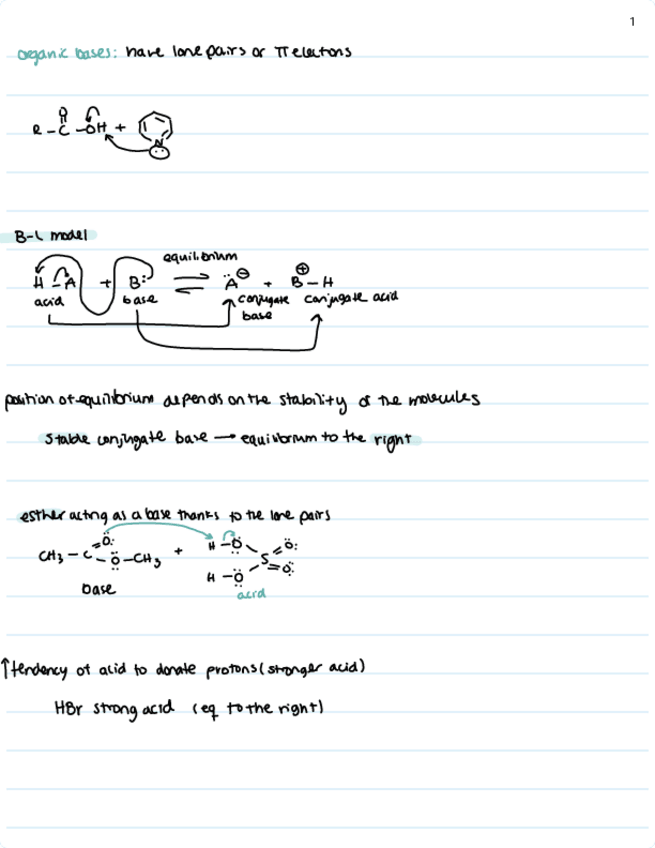 1
organic bases: have lone pairs or π electrons
O
R - C - OH + N
B-L model
equilibrium
H - A + B: ⇌ Ä ⊖ + B - H ⊕
acid base conjugate base conjugate acid
position of equilibrium depends on the stability of the molecules
stable conjugate base → equilibrium to the right
esther acting as a base thanks to the lone pairs
CH3 - C = O - O - CH3 + H - O H - O S = O = O
base acid
↑ tendency of acid to donate protons (stronger acid)
HBr strong acid (eq to the right)